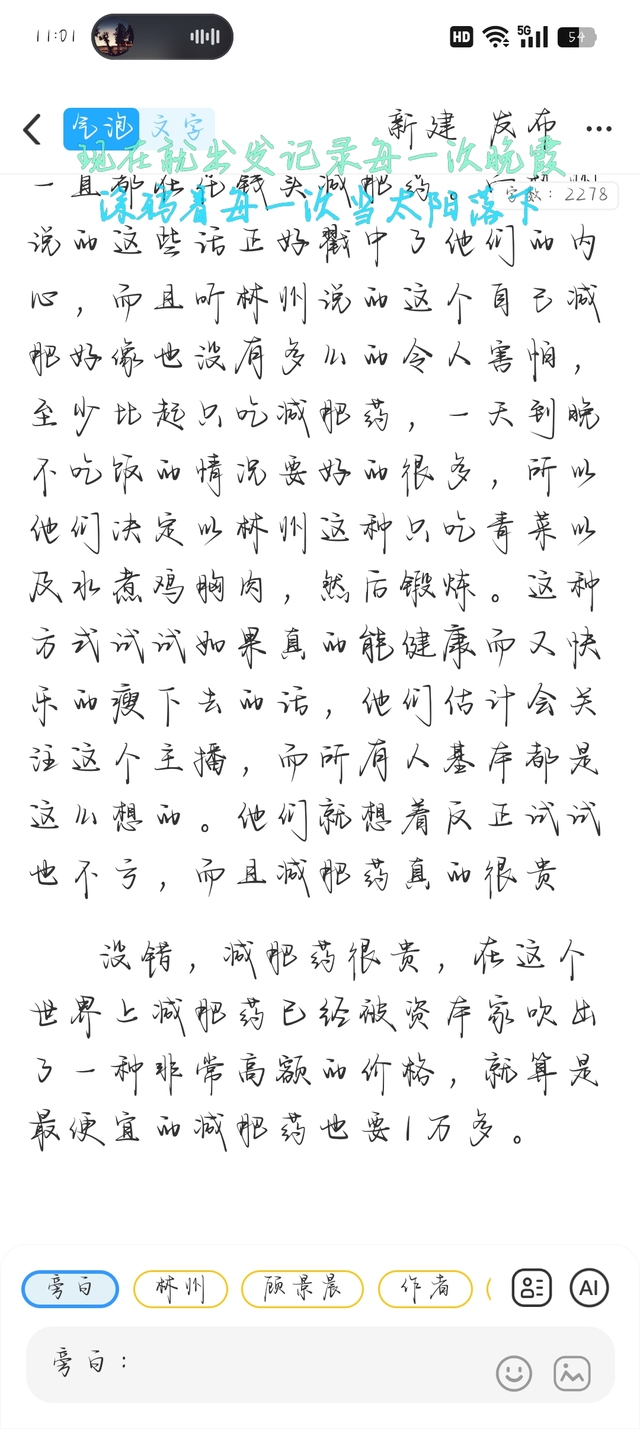 11:01
HD 5G 54
气泡 文字 新建 发布 ...
现在就出发记录每一次晚霞
字数: 2278
涂鸦着每一次当太阳落下
一且都在任钱头减肥药。
说的这些话正好戳中了他们的内
心，而且听林州说的这个自己减
肥好像也没有多么的令人害怕，
至少比起只吃减肥药，一天到晚
不吃饭的情况要好的很多，所以
他们决定以林州这种只吃青菜以
及水煮鸡胸肉，然后锻炼。这种
方式试试如果真的能健康而又快
乐的瘦下去的话，他们估计会关
注这个主播，而所有人基本都是
这么想的。他们就想着反正试试
也不亏，而且减肥药真的很贵
没错，减肥药很贵，在这个
世界上减肥药已经被资本家吹出
了一种非常高额的价格，就算是
最便宜的减肥药也要1万多。
旁白 林州 顾景晨 作者 AI
旁白：